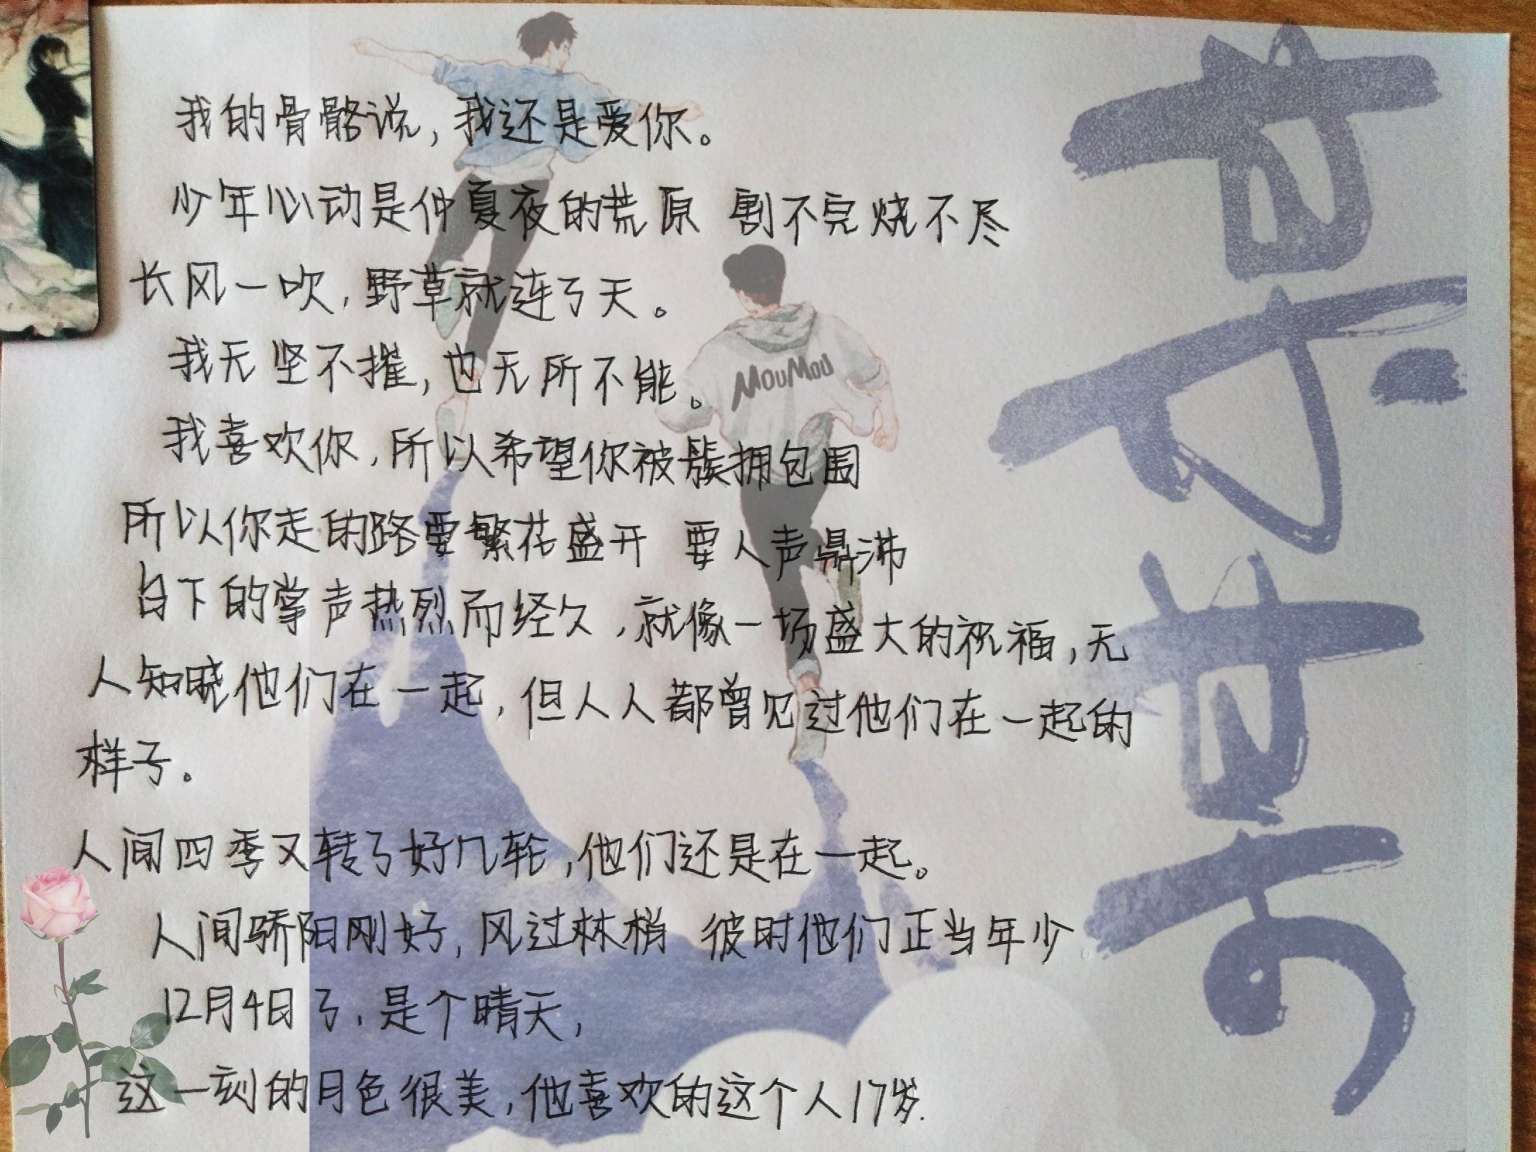 我的骨骼说，我还是爱你。
少年心动是仲夏夜的荒原 割不完烧不尽
长风一吹，野草就连了天。
我无坚不摧，也无所不能。
我喜欢你，所以希望你被簇拥包围
所以你走的路要繁花盛开 要人声鼎沸
台下的掌声热烈而经久，就像一场盛大的祝福，无
人知晓他们在一起，但人人都曾见过他们在一起的
样子。
人间四季又转了好几轮，他们还是在一起。
人间骄阳刚好，风过林梢 彼时他们正当年少
12月4日了，是个晴天，
这一刻的月色很美，他喜欢的这个人17岁.
MOUMOU
某某